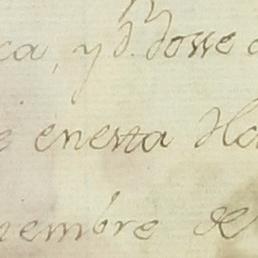 ca, y D. Josse
e enesta Ha
iembre de